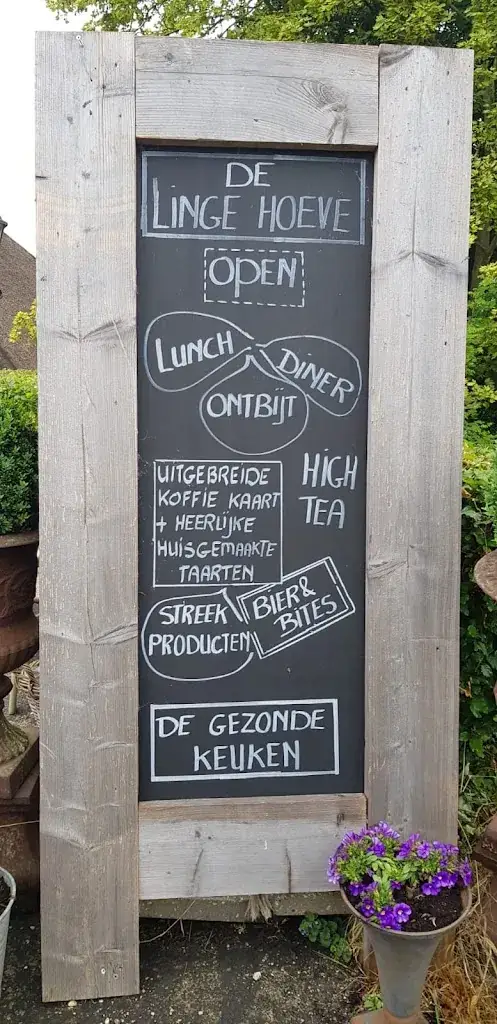 DE
LINGE HOEVE
OPEN
LUNCH
DINER
ONTBIJT
UITGEBREIDE
KOFFIE KAART
+ HEERLIJKE
HUISGEMAAKTE
TAARTEN
HIGH
TEA
STREEK
PRODUCTEN
BIER &
BITES
DE GEZONDE
KEUKEN